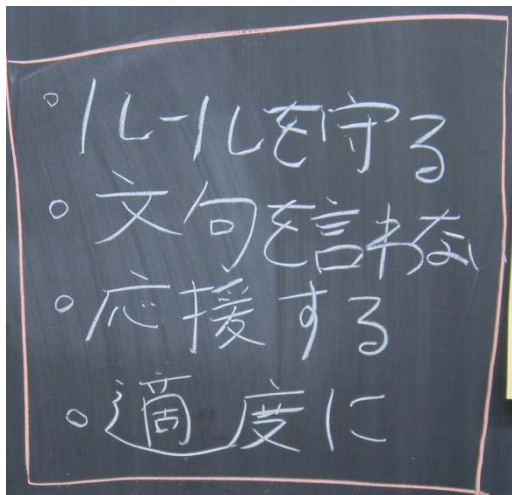 ○ルールを守る
○文句を言わない
○応援する
○適度に